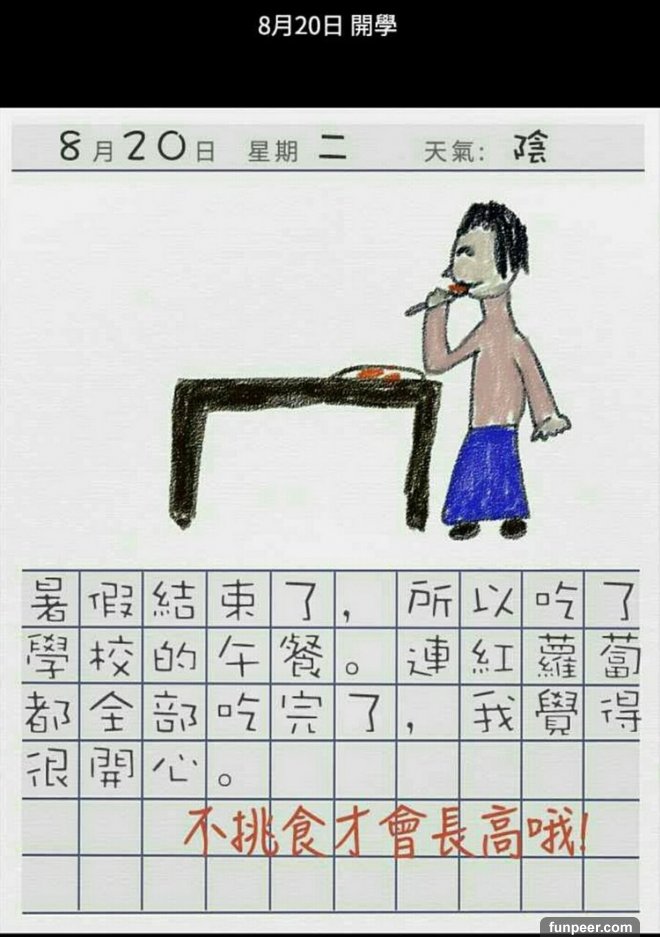 8月20日 開學
8月20日 星期 二 天氣: 陰
暑假結束了，所以吃了
學校的午餐。連紅蘿蔔
都全部吃完了，我覺得
很開心。
不挑食才會長高哦!
funpeer.com